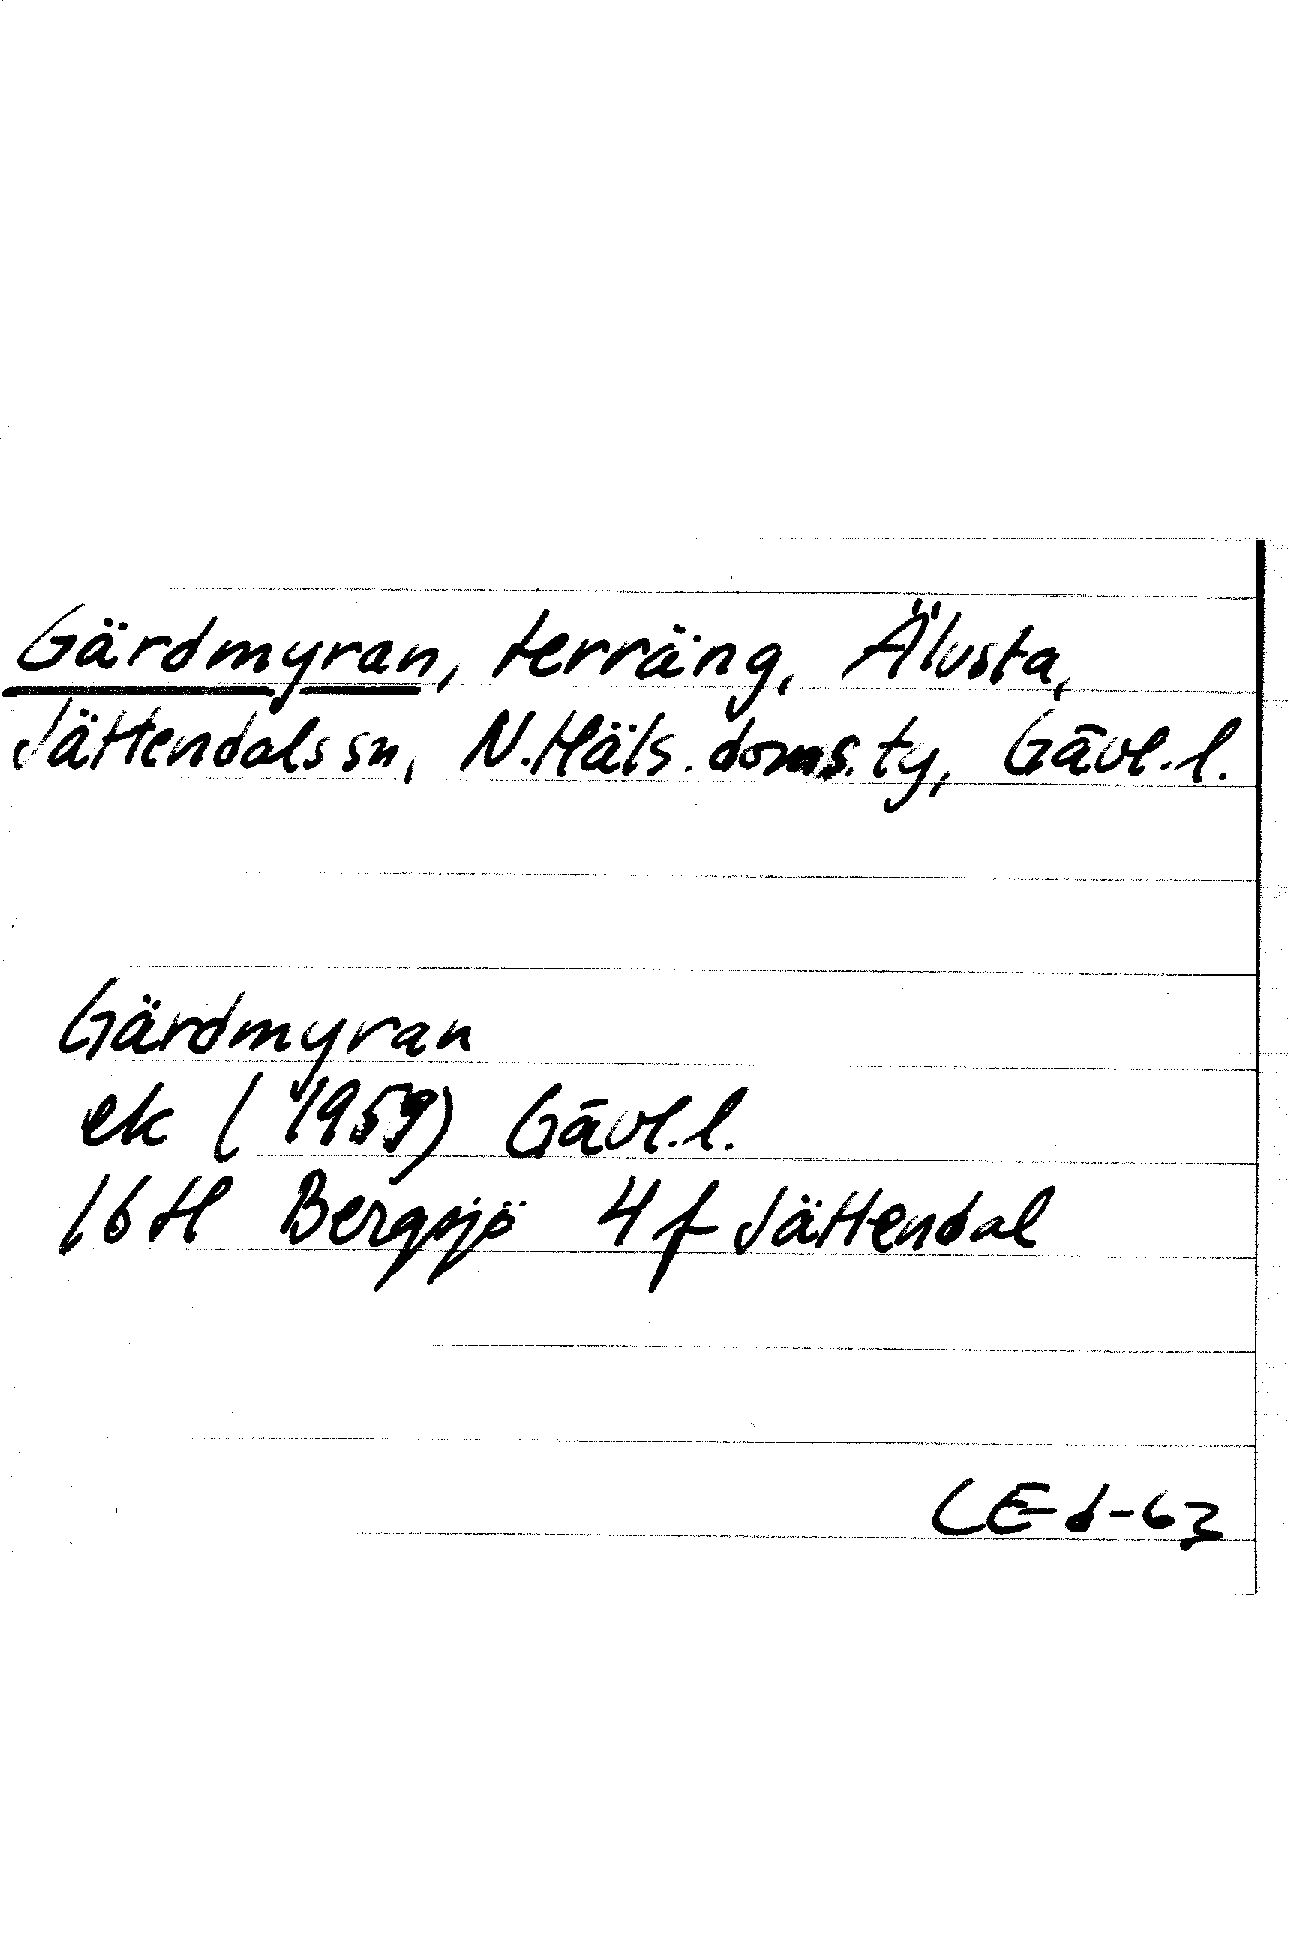 Gärdmyran, terräng, Älvsta,
Jättendals sn, N. Häls. doms. ty, Gävl. l.
Gärdmyran
ek (1959) Gävl. l.
16 H Bergsjö 4 f Jättendal
CE d-63